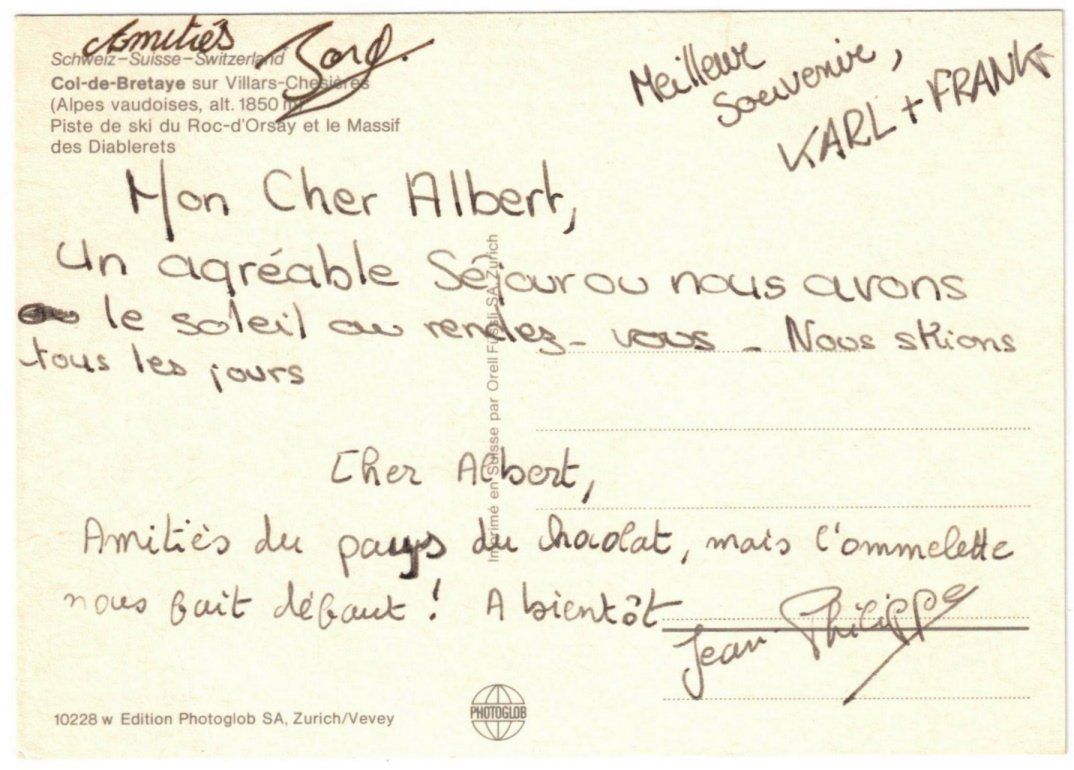 Amitiés
Schweiz–Suisse–Switzerland
Col-de-Bretaye sur Villars-Chesières
(Alpes vaudoises, alt. 1850 m)
Piste de ski du Roc-d'Orsay et le Massif
des Diablerets
Meilleur
souvenir,
KARL + FRANK
Mon Cher Albert,
Un agréable séjour ou nous avons
le soleil au rendez-vous - Nous skions
tous les jours
Imprimé en Suisse par Orell Füssli SA, Zurich
Cher Albert,
Amitiès du pays du chocolat, mais l'ommelette
nous fait défaut ! A bientôt
Jean-Philippe
10228 w Edition Photoglob SA, Zurich/Vevey
PHOTOGLOB